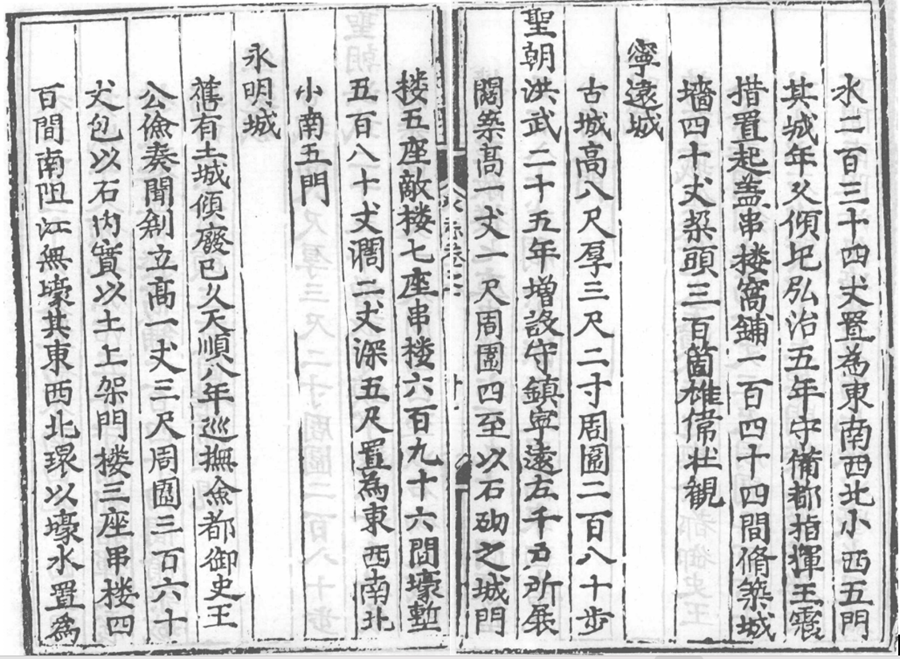 水二百三十四丈置為東南西北小西五門
其城年久傾圮弘治五年守備都指揮王震
措置起盖串楼窩鋪一百四十四間脩築城
墻四十丈梁頭三百箇雄偉壮觀
寧遠城
古城高八尺厚三尺二寸周圍二百八十歩
聖朝洪武二十五年增設守鎮寧遠左千戸所展
闊築髙一丈一尺周圍四至以石砌之城門
楼五座敵楼七座串楼六百九十六間壕塹
五百八十丈濶二丈深五尺置為東西南北
小南五門
永明城
舊有土城傾廢已久天順八年巡撫僉都御史王
公儉奏聞創立高一丈三尺周圍三百六十
丈包以石内實以土上架門楼三座串楼四
百間南阻江無壕其東西北環以壕水置為